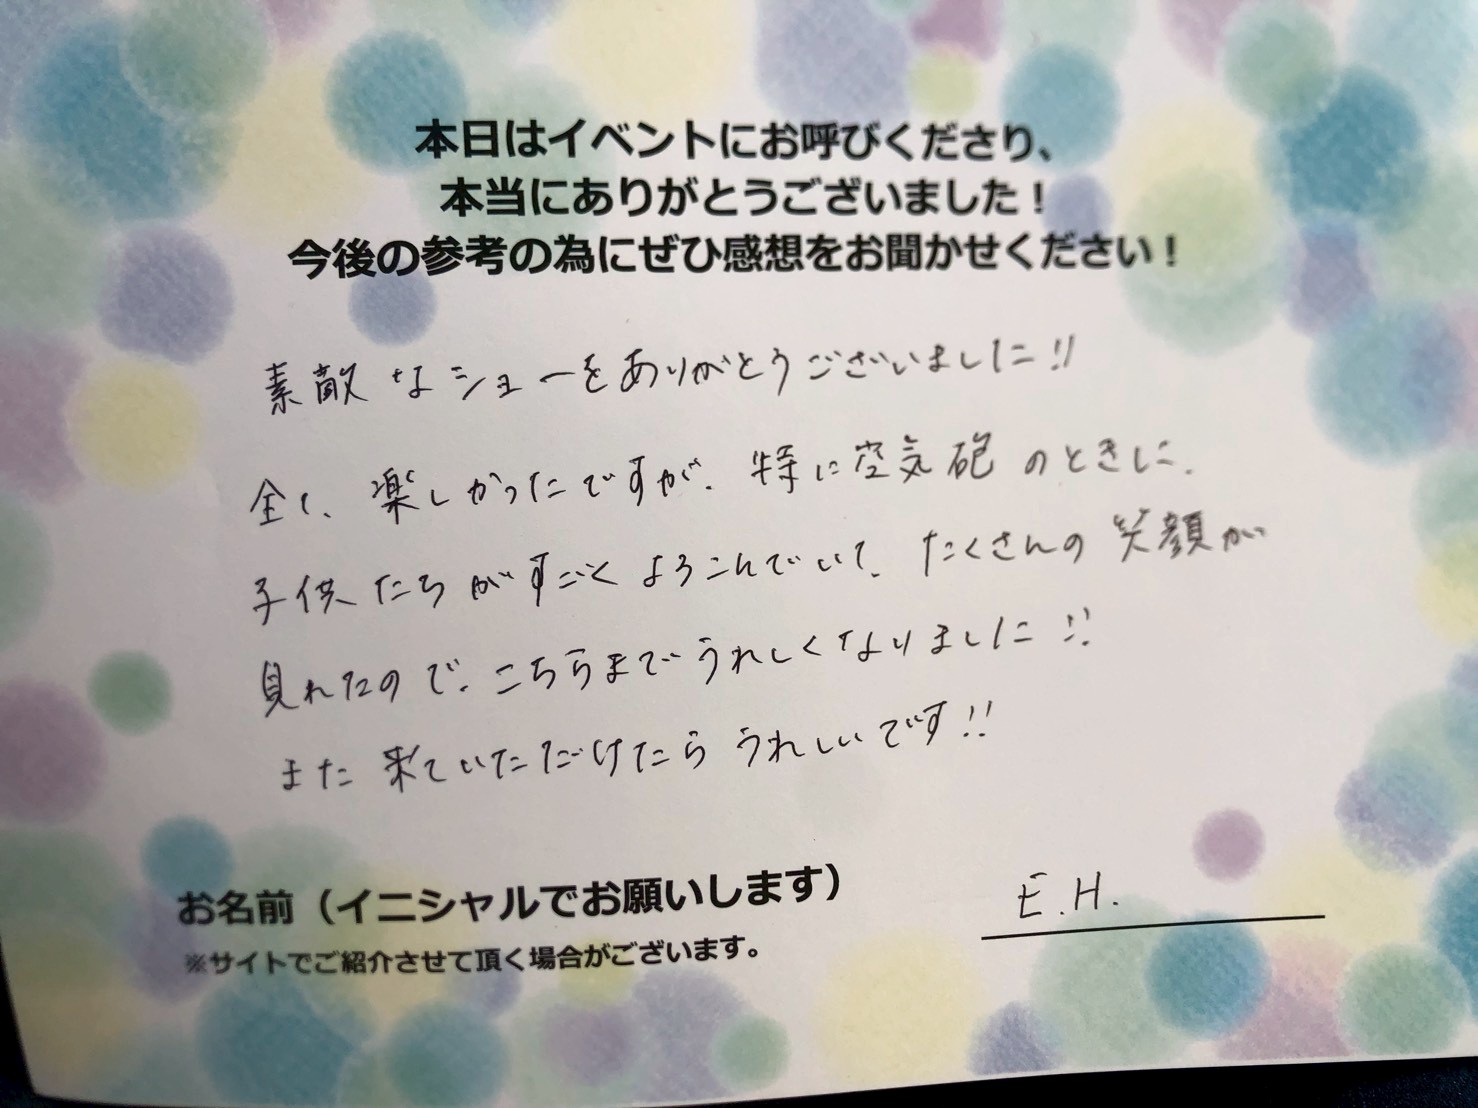 本日はイベントにお呼びくださり、
本当にありがとうございました！
今後の参考の為にぜひ感想をお聞かせください！
素敵なショーをありがとうございました!!
全て、楽しかったですが、特に空気砲のときに、
子供たちがすごくよろこんでいて、たくさんの笑顔が
見れたので、こちらまでうれしくなりました!!
また来ていただけたらうれしいです!!
お名前（イニシャルでお願いします）
E.H.
※サイトでご紹介させて頂く場合がございます。